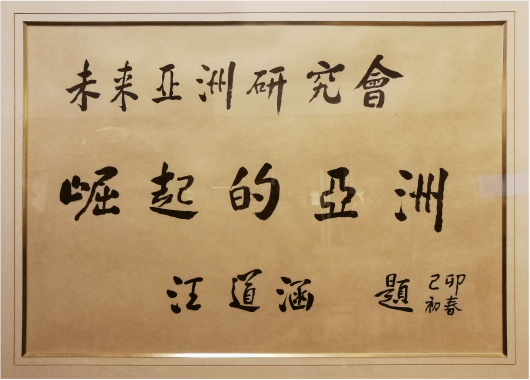 未来亚洲研究會
崛起的亞洲
汪道涵 題 己卯
初春